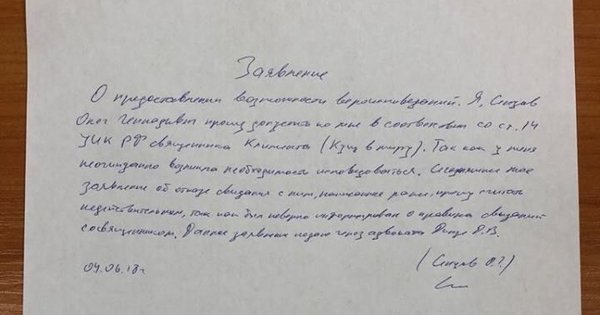 Заявление
О предоставлении возможности вероисповеданий. Я, Сенцов
Олег Геннадьевич прошу допустить ко мне в соответствии со ст. 14
УИК РФ священника Климента (Кущ в миру). Так как у меня
неожиданно возникла необходимость исповедоваться.
заявление об отказе свидания с ним, написанное ранее, прошу считать
недействительным, так как был неверно информирован о правилах свиданий
со священником. Данное заявление подаю через адвоката
04.06.18г
(Сенцов О.Г.)